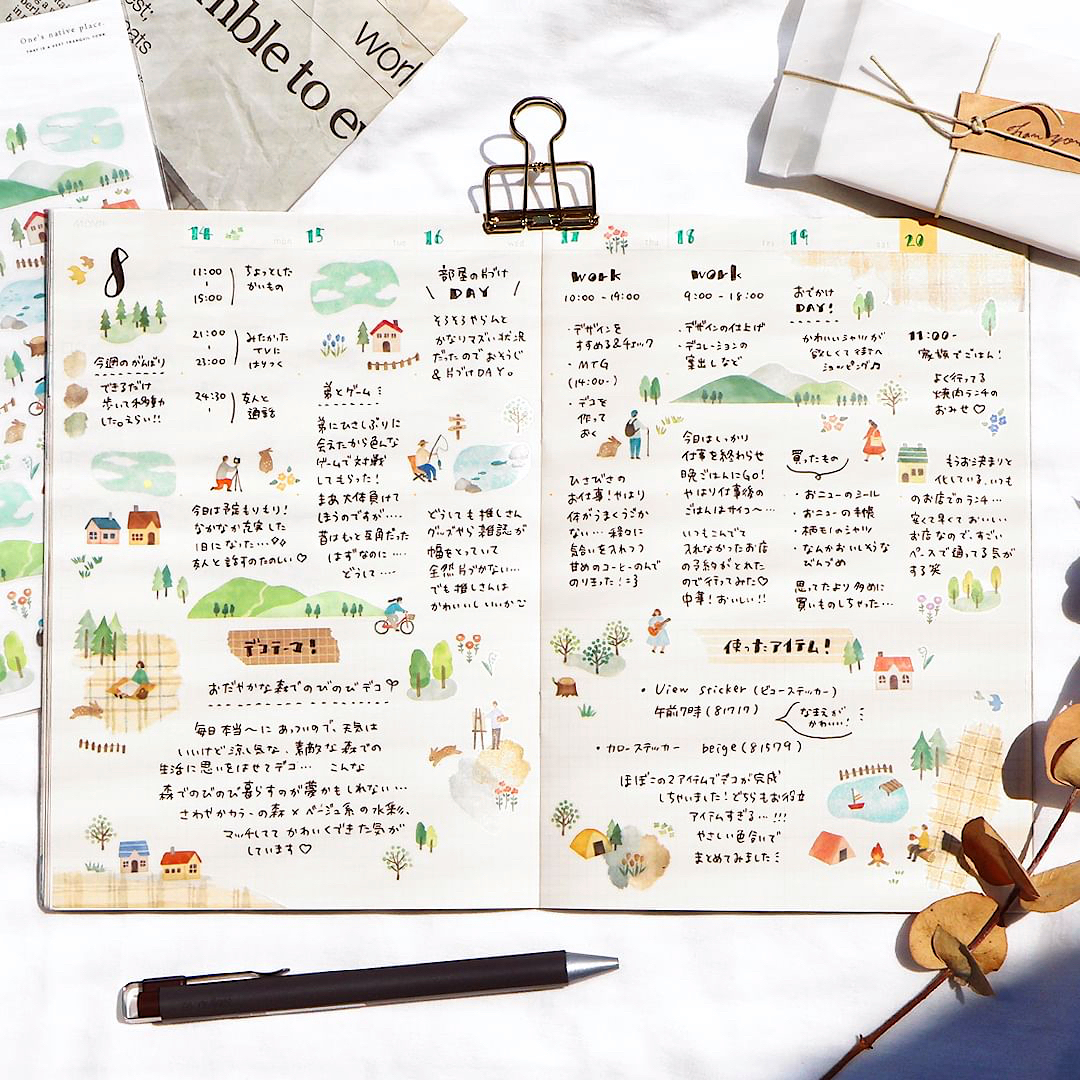 One's native place.
THAT IS A VERY TRANQUIL TOWN
mble to e
work
Thank you
MONTH
8
14
mon
15
tue
16
wed
17
thu
18
fri
19
sat
20
今週のがんばり
できるだけ
歩いて移動
した。えらい!!
11:00
15:00
ちょっとした
かいもの
21:00
23:00
みたかった
TVに
はりつく
24:30
友人と
通話
今日は予定もりもり!
なかなか充実した
1日になった…
友人と話すのたのしい♡
弟とゲーム
弟にひさしぶりに
会えたから色んな
ゲームで対戦
してもらった!
まあ大体負けて
しまうのですが…
昔はもっと互角だった
はずなのに…
どうして…
部屋の片づけ
DAY
そろそろやらんと
かなりマズい状況
だったのでおそうじ
&片づけDAY。
どうしても推しさん
グッズやら雑誌が
幅をとっていて
全然片づかない…
でも推しさんは
かわいいしいいか
work
10:00 - 19:00
・デザインを
すすめる&チェック
・MTG
(14:00-)
・デコを
作って
おく
ひさびさの
お仕事!やはり
体がうまくうごか
ない…
気合いを入れつつ
甘めのコーヒーのんで
のりきった!
work
9:00 - 18:00
・デザインの仕上げ
・デコレーションの
案出しなど
今日はしっかり
仕事を終わらせ
晩ごはんにGO!
やはり仕事後の
ごはんはサイコ〜…
いつもこんでて
入れなかったお店
の予約がとれた
ので行ってみた♡
中華!おいしい!!
おでかけ
DAY!
かわいいシャツが
欲しくて街へ
ショッピング♫
買ったもの
・おニューのシール
・おニューの手帳
・柄モノのシャツ
・なんかおいしそうな
びんづめ
思ってたより多めに
買いものしちゃった…
11:00-
家族でごはん!
よく行ってる
焼肉ランチの
おみせ♡
もうお決まりと
化している、いつも
のお店でのランチ…
安くて早くておいしい
お店なので、すごい
ペースで通ってる気が
する笑
デコテーマ!
おだやかな森でのびのびデコ
毎日本当〜にあついので、天気は
いいけど涼し気な、素敵な森での
生活に思いをはせてデコ… こんな
森でのびのび暮らすのが夢かもしれない…
さわやかカラーの森×ベージュ系の水彩、
マッチしてて かわいくできた気が
しています♡
使ったアイテム!
・View sticker (ビューステッカー)
午前7時(81717)
なまえが
かわいい!
・カローステッカー beige(81579)
ほぼこの2アイテムでデコが完成
しちゃいました!どちらもお役立
アイテムすぎる…!!!
やさしい色合いで
まとめてみました